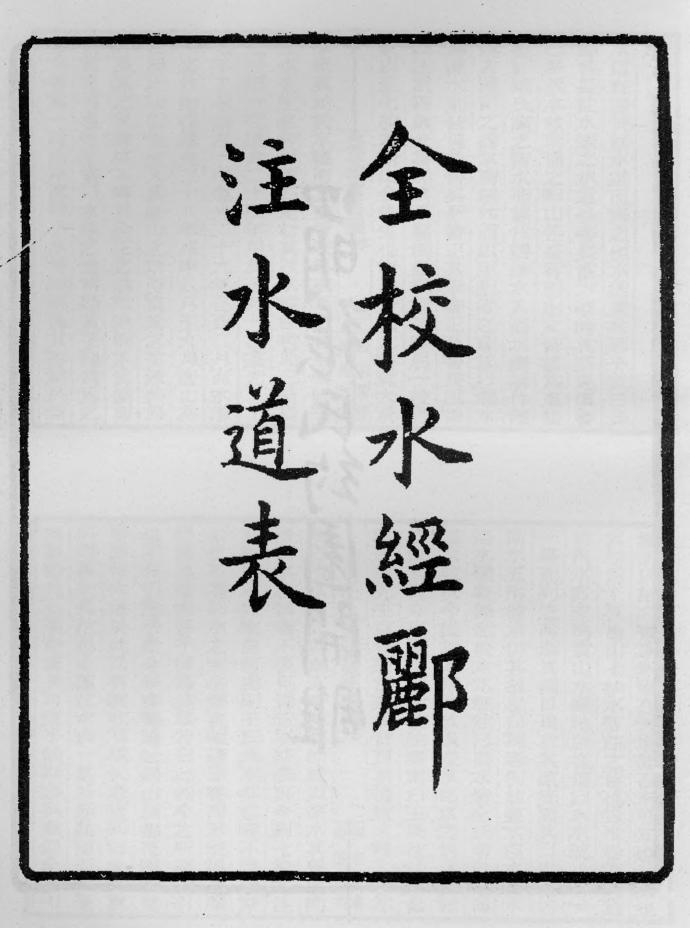 全校水經酈
注水道表